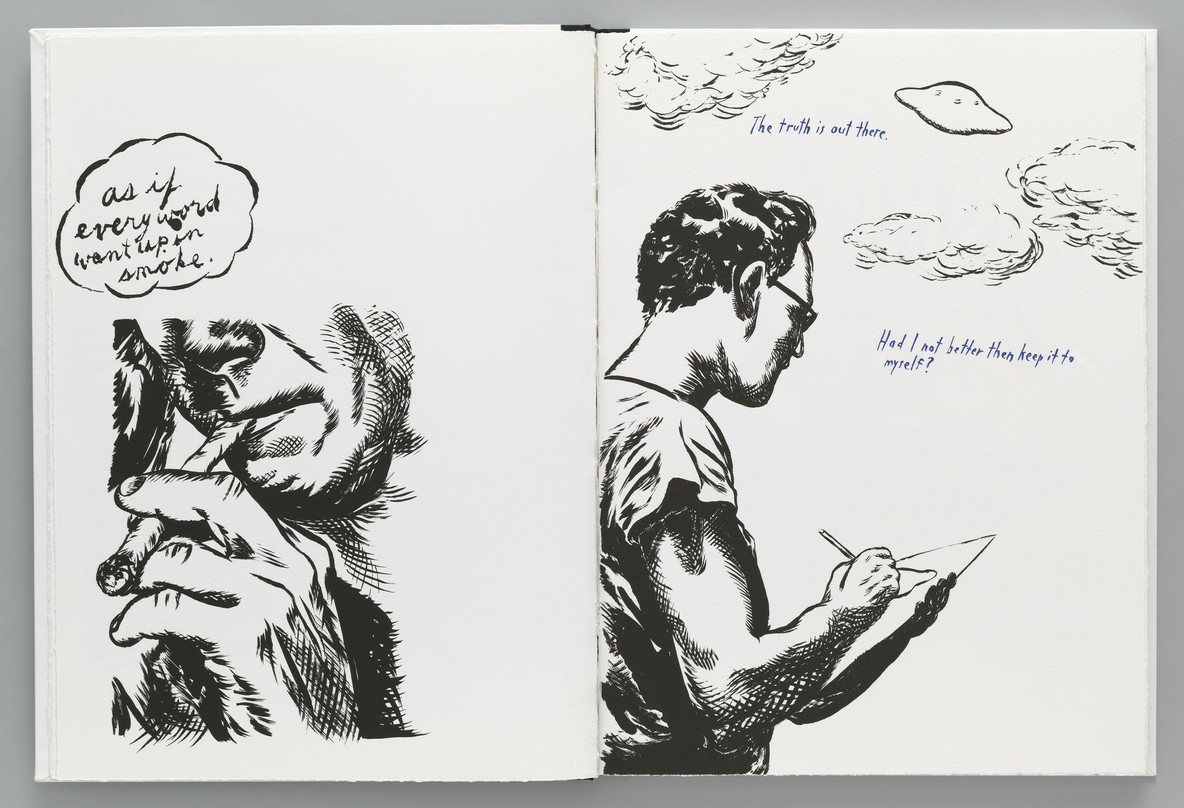 as if
every word
went up in
smoke.
The truth is out there.
Had I not better then keep it to
myself?